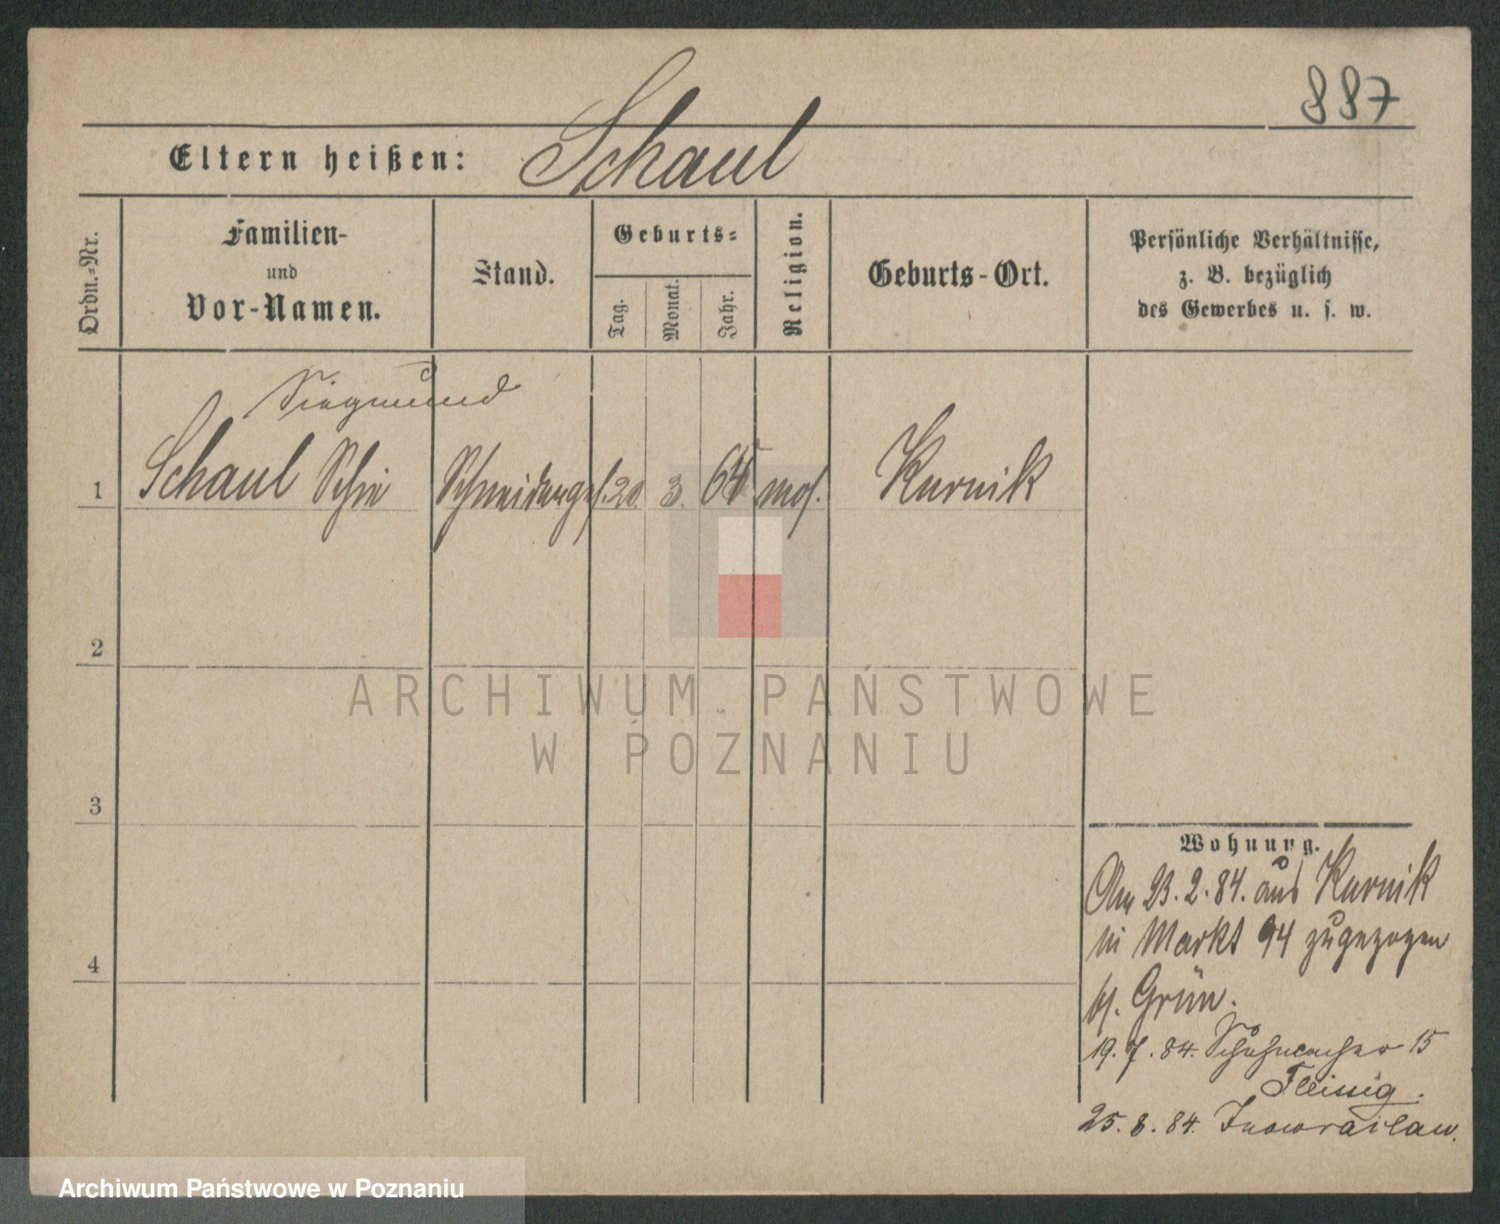 887
Eltern heißen: Schaul
Ordn.-Nr.
Familien-
und
Vor-Namen.
Stand.
Geburts-
Tag.
Monat.
Jahr.
Religion.
Geburts-Ort.
Persönliche Verhältnisse,
z. B. bezüglich
des Gewerbes u. s. w.
Siegmund
1 Schaul Schie Schneiderges. 20. 3. 64 mos. Kurnik
2
3
4
Wohnung.
Am 23.2.84. aus Kurnik
in Markt 94 zugezogen
bei Grün.
19.7.84. Schuhmacher 15
Fleissig.
25.8.84. Inowrazlaw.
ARCHIWUM PAŃSTWOWE
W POZNANIU
Archiwum Państwowe w Poznaniu